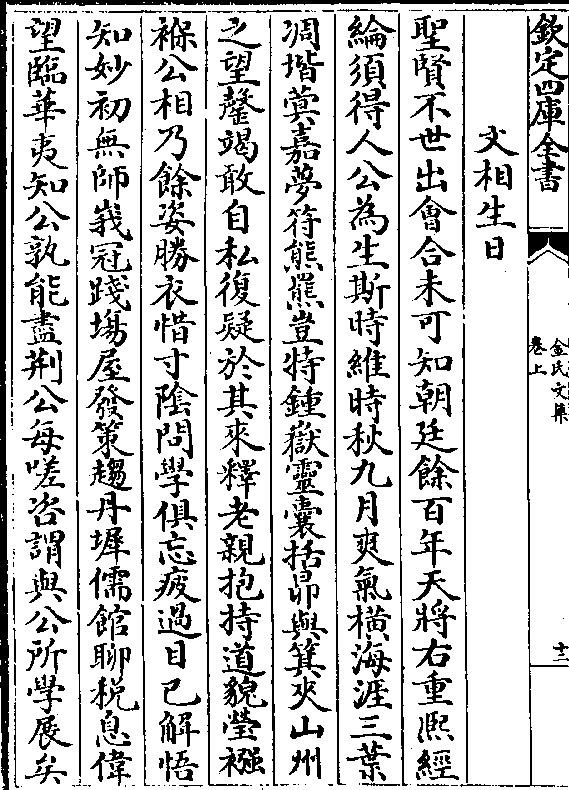 欽定四庫全書
金氏文集
卷上
十二
文相生日
聖賢不世出會合未可知朝廷餘百年天將右重熈經
綸須得人公為生斯時維時秋九月爽氣橫海涯三葉
凋堦蓂嘉夢符熊羆豈特鍾嶽靈囊括昴與箕夾山州
之望罄竭敢自私復疑於其來釋老親抱持道貌瑩襁
褓公相乃餘姿勝衣惜寸陰問學俱忘疲過目已解悟
知妙初無師峩冠踐塲屋發策趨丹墀儒館聊稅息偉
望臨華夷知公孰能盡荆公每嗟咨謂與公所學展矣